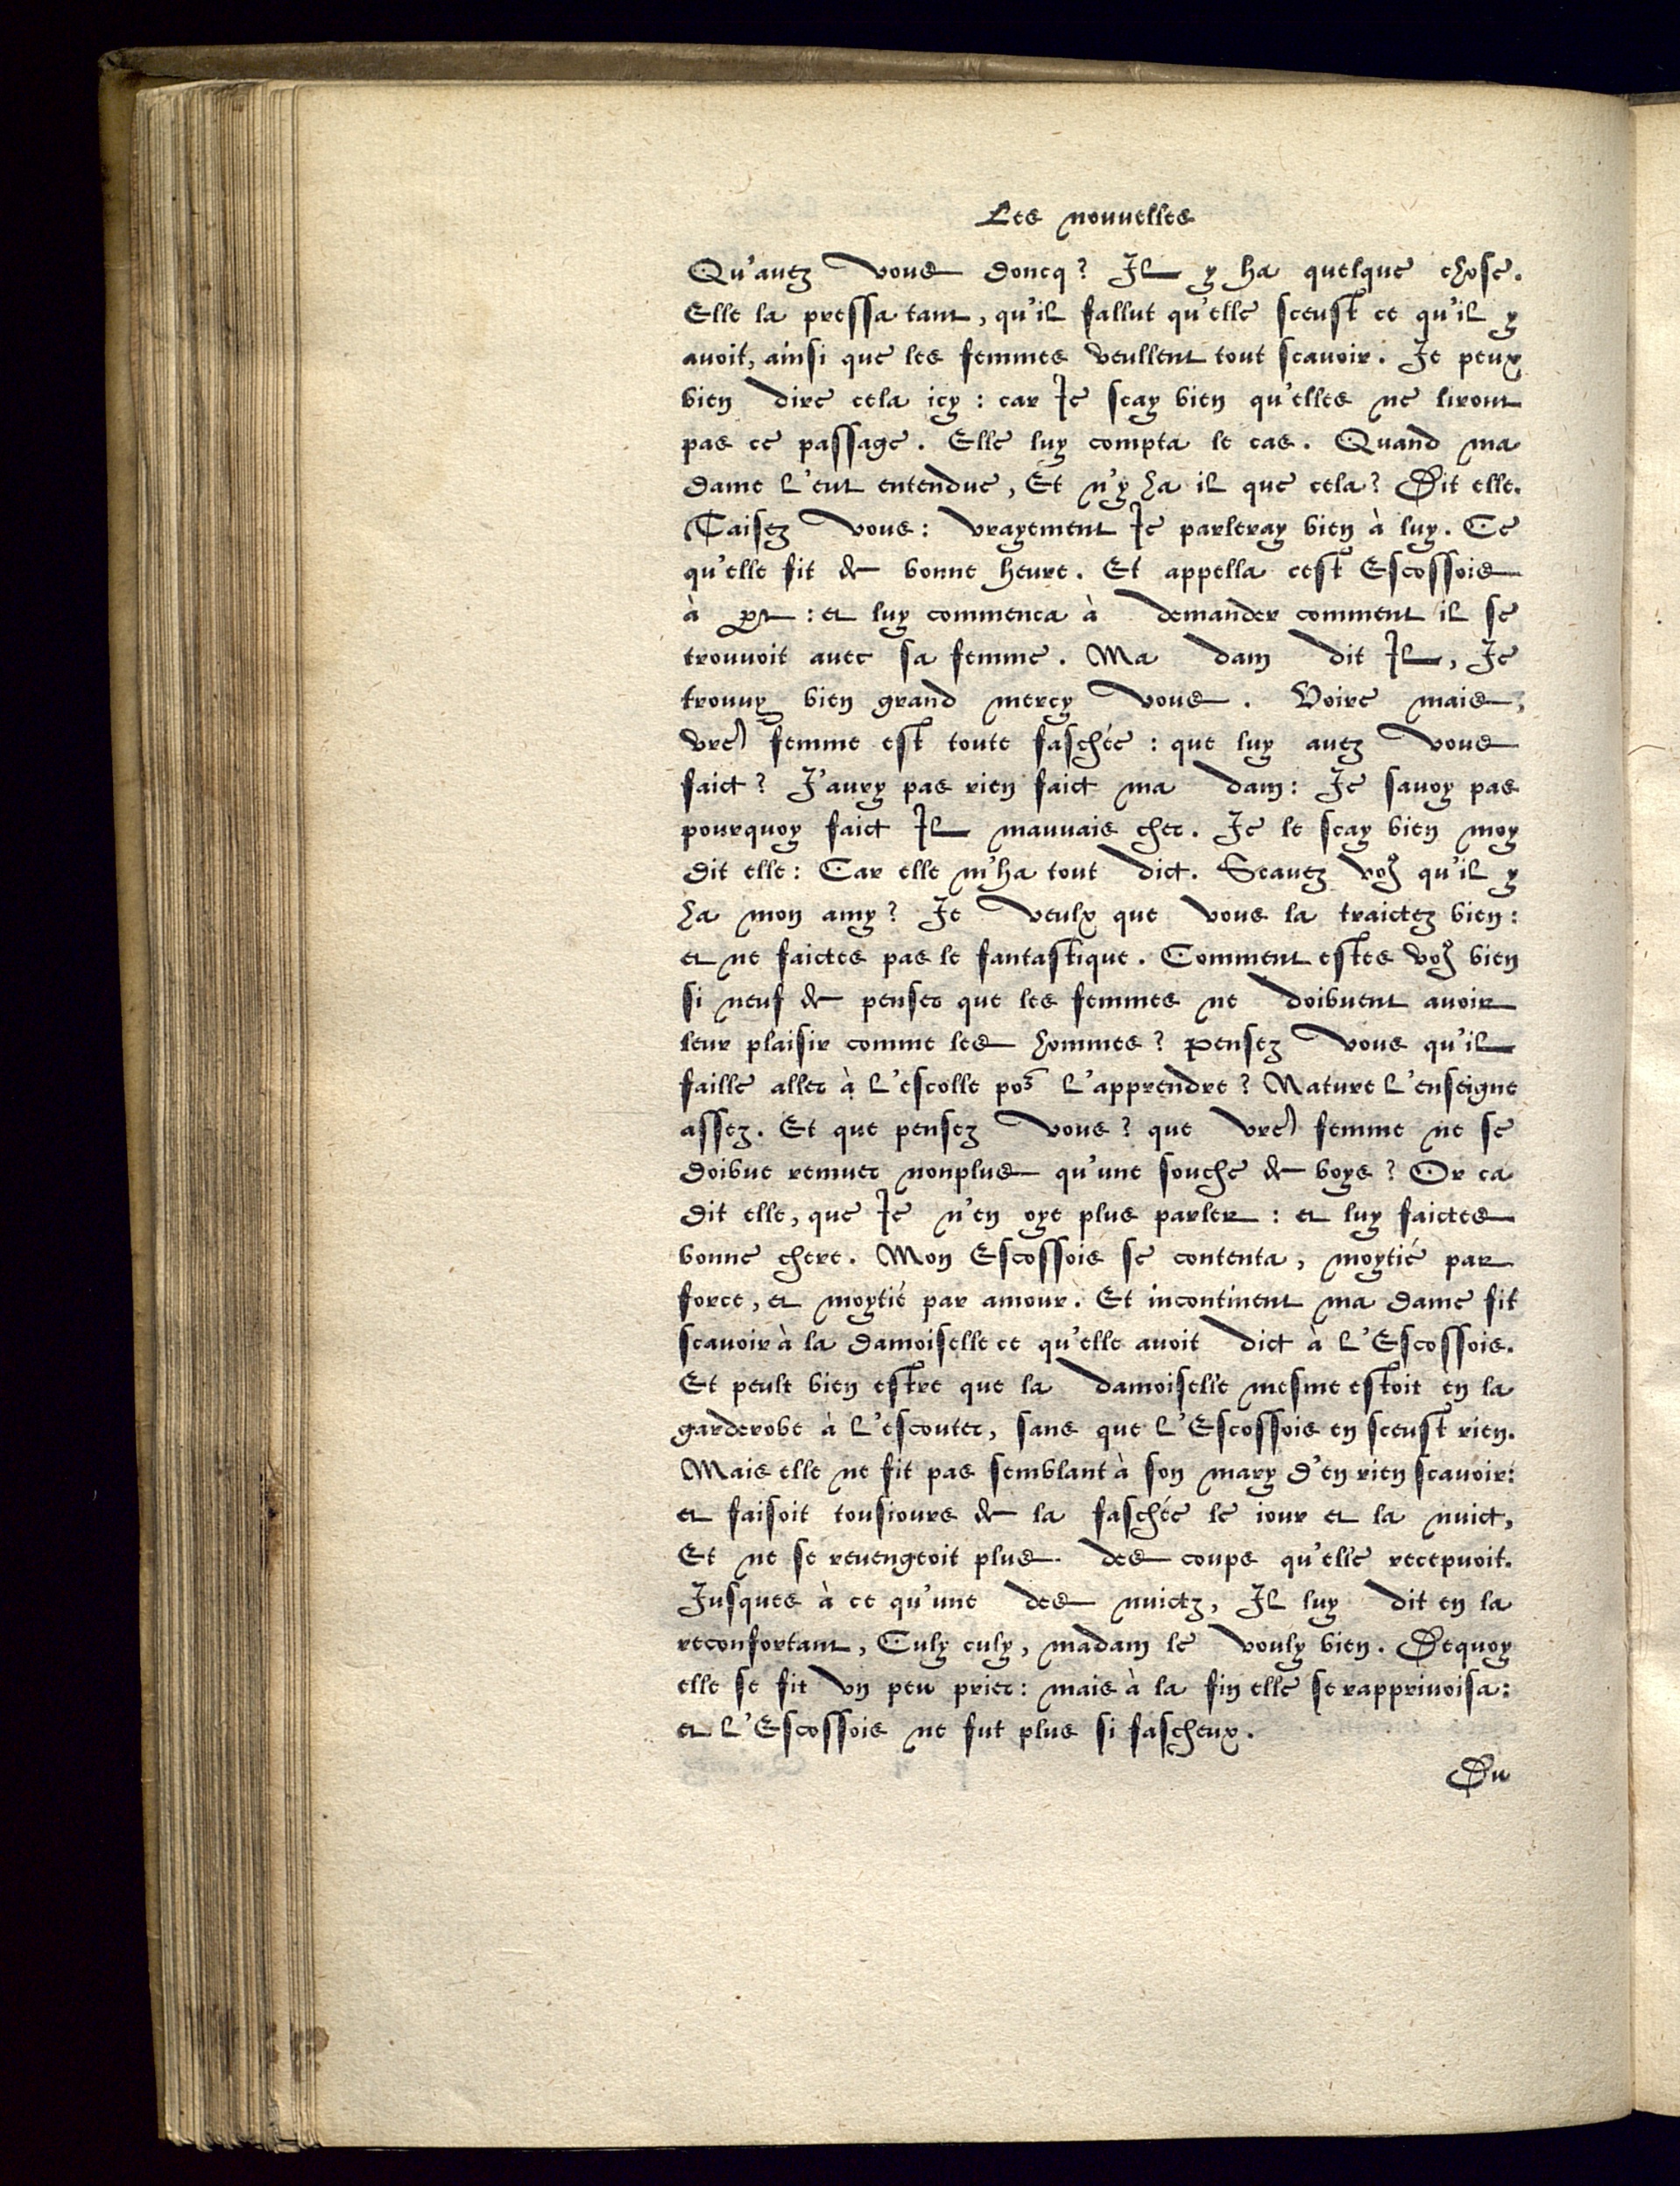 Les nouuelles
Qu'auez vous doncq? Il y ha quelque chose.
Elle la pressa tant, qu'il fallut qu'elle sceust ce qu'il y
auoit, ainsi que les femmes veullent tout scauoir. Je peux
bien dire cela icy : car Je scay bien qu'elles ne liront
pas ce passage. Elle luy compta le cas. Quand ma
dame l'eut entendue, Et n'y ha il que cela? Dit elle.
Taisez vous: vrayement Je parleray bien à luy. Ce
qu'elle fit de bonne heure. Et appella cest Escossois
à part : et luy commenca à demander comment il se
trouuoit auec sa femme. Ma dam dit Il, Je
trouuy bien grand mercy vous. Voire mais,
vre femme est toute faschée : que luy auez vous
faict? J'aury pas rien faict ma dam: Je sauoy pas
pourquoy faict Il mauuais cher. Je le scay bien moy
dit elle: Car elle m'ha tout dict. Scauez vo9 qu'il y
ha mon amy? Je veulx que vous la traictez bien:
et ne faictes pas le fantastique. Comment estes vo9 bien
si neuf de penser que les femmes ne doibuent auoir
leur plaisir comme les hommes? Pensez vous qu'il
faille aller à l'escolle por l'apprendre? Nature l'enseigne
assez. Et que pensez vous? que vre femme ne se
doibue remuer nonplus qu'une souche de boys? Or ca
dit elle, que Je n'en oye plus parler : et luy faictes
bonne chere. Mon Escossois se contenta, moytié par
force, et moytié par amour. Et incontinent ma dame fit
scauoir à la damoiselle ce qu'elle auoit dict à l'Escossois.
Et peult bien estre que la damoiselle mesme estoit en la
garderobe à l'escouter, sans que l'Escossois en sceust rien.
Mais elle ne fit pas semblant à son mary d'en rien scauoir:
et faisoit tousiours de la faschée le iour et la nuict,
Et ne se reuengeoit plus des coups qu'elle recepuoit.
Jusques à ce qu'une des nuictz, Il luy dit en la
reconfortant, Culy culy, madam le vouly bien. Dequoy
elle se fit vn peu prier: mais à la fin elle se rappriuoisa:
et l'Escossois ne fut plus si fascheux.
Du